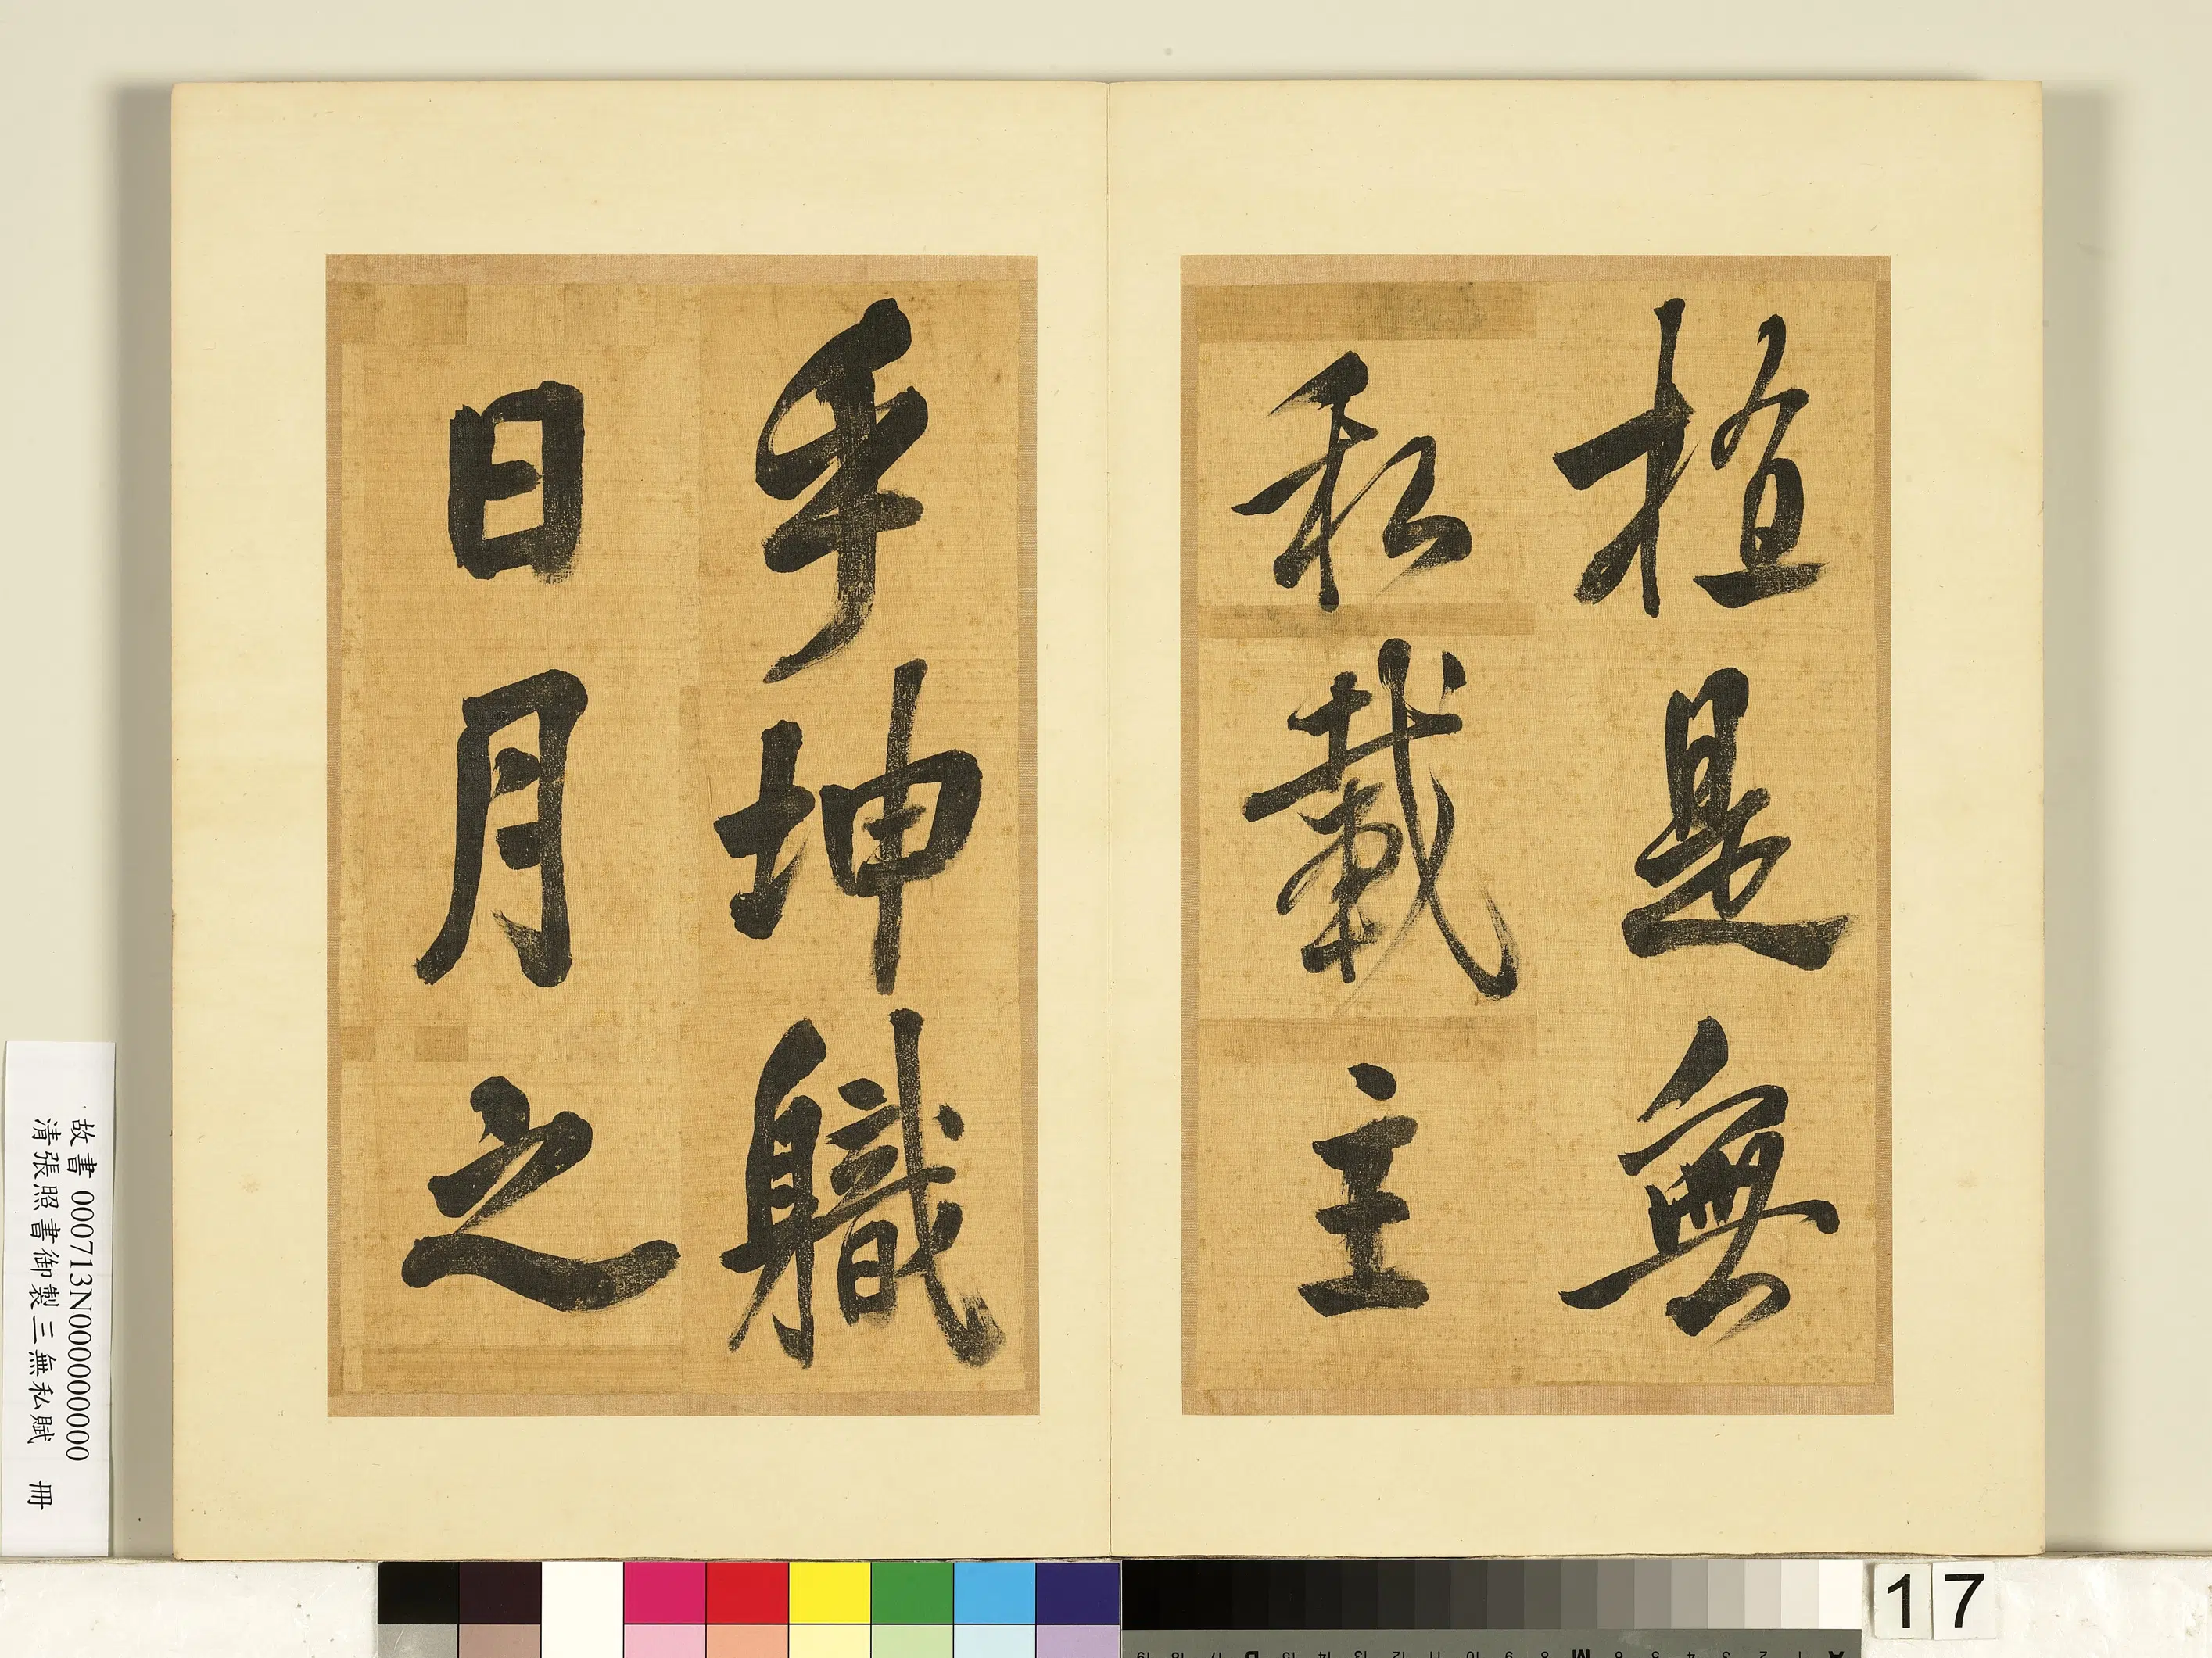 植是無
私載主
乎坤軄
日月之
故書 000713N000000000
清張照書御製三無私賦 冊
17